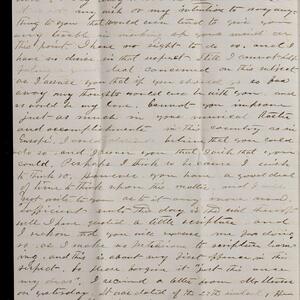 my wish or my intention to say any
thing to you that would even tend to give you
any trouble in making up your mind on
this point. I have no right to do so, and I
have no desire in that respect. Still I cannot help
feeling that concerned on this subject
as I assure you that if so far
away my thoughts would ever be with you, and
so would be my love. Cannot you improve
just as much in your musical taste
and accomplishments in this country as in
Europe? I believe that you could
do so, and I you think that you
could. Perhaps I think so because I wish
to think so, however you have a good deal
of time to think upon this matter, and I will
not write to you as to it any more now.
Sufficient unto the day is the evil thereof
will I you a little scripture and
I reckon that you will excuse me for doing
so, as I make no pretension to scripture learn
ing, and this is about my first offence in this
respect. So please forgive it "just this once
my dear". I received a letter from
on yesterday. It was dated of the 27th inst.